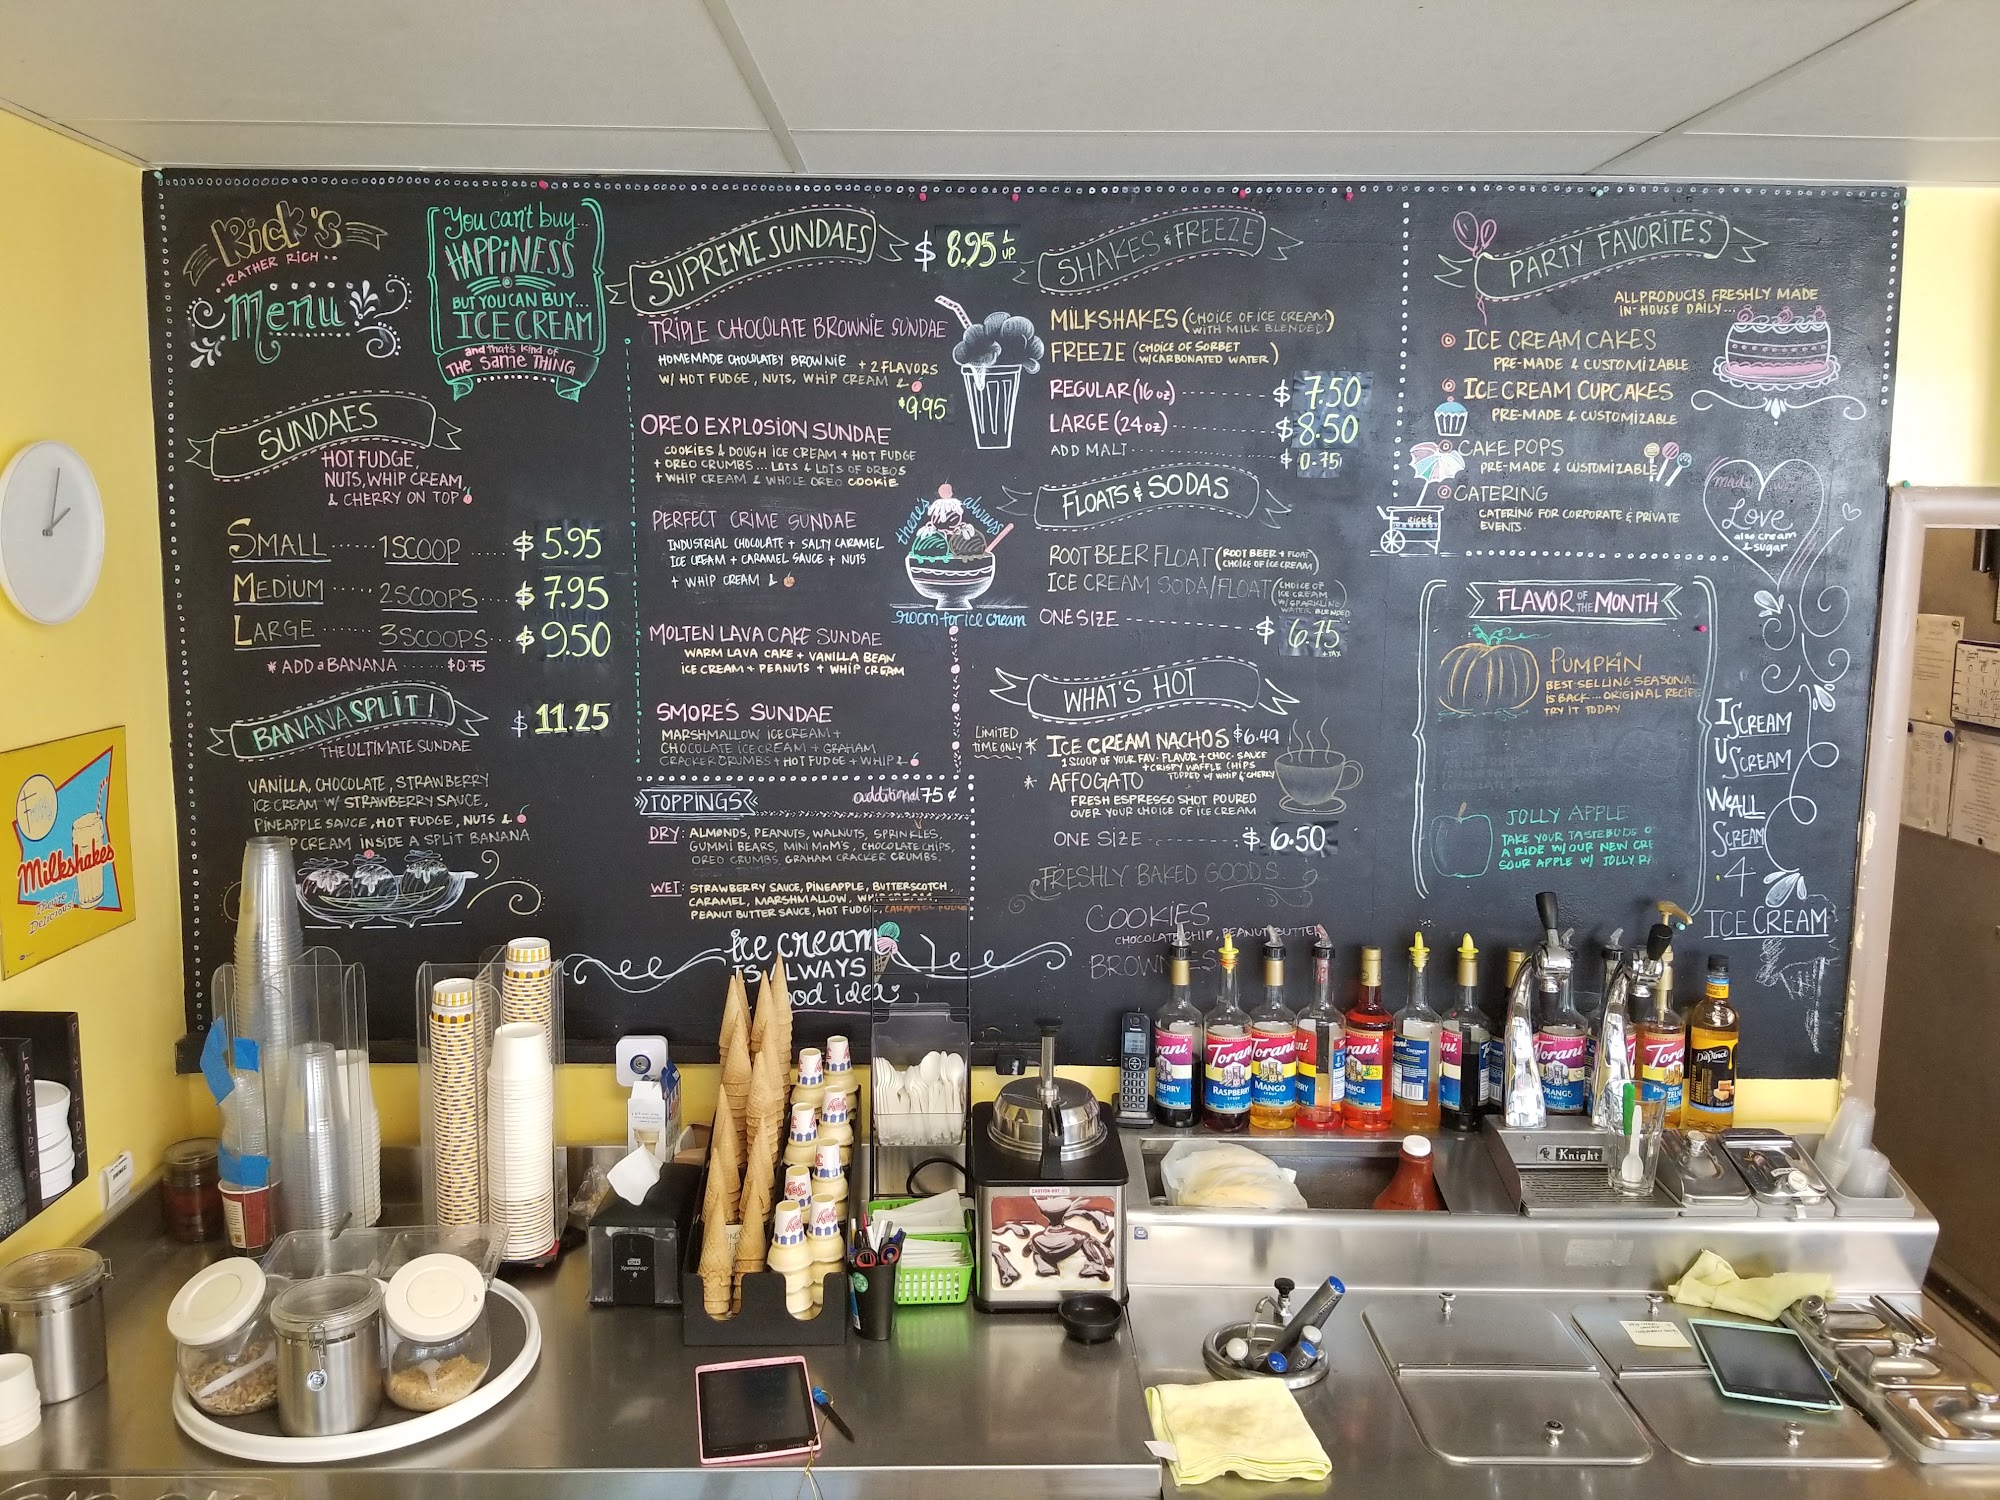 Rick's
RATHER RICH
Menu
You can't buy...
HAPPINESS
BUT YOU CAN BUY...
ICE CREAM
and that's kind of
THE SAME THING
SUNDAES
HOT FUDGE,
NUTS, WHIP CREAM,
& CHERRY ON TOP
SMALL ...... 1 SCOOP .... $ 5.95
MEDIUM ...... 2 SCOOPS .... $ 7.95
LARGE ...... 3 SCOOPS .... $ 9.50
* ADD a BANANA ...... $0.75
BANANA SPLIT! $ 11.25
THE ULTIMATE SUNDAE
VANILLA, CHOCOLATE, STRAWBERRY
ICE CREAM W/ STRAWBERRY SAUCE,
PINEAPPLE SAUCE, HOT FUDGE, NUTS &
P CREAM INSIDE A SPLIT BANANA
SUPREME SUNDAES $ 8.95 & UP
TRIPLE CHOCOLATE BROWNIE SUNDAE
HOMEMADE CHOCOLATEY BROWNIE + 2 FLAVORS
W/ HOT FUDGE, NUTS, WHIP CREAM &
$9.95
OREO EXPLOSION SUNDAE
COOKIES & DOUGH ICE CREAM + HOT FUDGE
+ OREO CRUMBS... LOTS & LOTS OF OREOS
+ WHIP CREAM & WHOLE OREO COOKIE
PERFECT CRIME SUNDAE
INDUSTRIAL CHOCOLATE + SALTY CARAMEL
ICE CREAM + CARAMEL SAUCE + NUTS
+ WHIP CREAM &
MOLTEN LAVA CAKE SUNDAE
WARM LAVA CAKE + VANILLA BEAN
ICE CREAM + PEANUTS + WHIP CREAM
SMORES SUNDAE
MARSHMALLOW ICE CREAM +
CHOCOLATE ICE CREAM + GRAHAM
CRACKER CRUMBS + HOT FUDGE + WHIP &
there's always
room for ice cream
TOPPINGS additional 75¢
DRY: ALMONDS, PEANUTS, WALNUTS, SPRINKLES,
GUMMI BEARS, MINI M&M'S, CHOCOLATE CHIPS,
OREO CRUMBS, GRAHAM CRACKER CRUMBS,
WET: STRAWBERRY SAUCE, PINEAPPLE, BUTTERSCOTCH,
CARAMEL, MARSHMALLOW, WHIP CREAM,
PEANUT BUTTER SAUCE, HOT FUDGE, CARAMEL FUDGE
ice cream
IS ALWAYS
ood idea
SHAKES & FREEZE
MILKSHAKES (CHOICE OF ICE CREAM
WITH MILK BLENDED)
FREEZE (CHOICE OF SORBET
W/CARBONATED WATER)
REGULAR (16 oz) .......... $ 7.50
LARGE (24 oz) .......... $ 8.50
ADD MALT .......... $ 0.75
FLOATS & SODAS
ROOT BEER FLOAT (ROOT BEER + FLOAT
CHOICE OF ICE CREAM)
ICE CREAM SODA/FLOAT (CHOICE OF
ICE CREAM
W/SPARKLING
WATER BLENDED
ONE SIZE .......... $ 6.75
+TAX
WHAT'S HOT
LIMITED
TIME ONLY * ICE CREAM NACHOS $6.49
1 SCOOP OF YOUR FAV. FLAVOR + CHOC. SAUCE
+ CRISPY WAFFLE CHIPS
TOPPED W/ WHIP & CHERRY
* AFFOGATO
FRESH ESPRESSO SHOT POURED
OVER YOUR CHOICE OF ICE CREAM
ONE SIZE ........ $ 6.50
FRESHLY BAKED GOODS
COOKIES
CHOCOLATE CHIP, PEANUT BUTTER
BROWNIES
PARTY FAVORITES
ALL PRODUCTS FRESHLY MADE
IN-HOUSE DAILY...
ICE CREAM CAKES
PRE-MADE & CUSTOMIZABLE
ICE CREAM CUPCAKES
PRE-MADE & CUSTOMIZABLE
CAKE POPS
PRE-MADE & CUSTOMIZABLE
CATERING
CATERING FOR CORPORATE & PRIVATE
EVENTS.
RICK'S
made with
Love
also cream
& sugar
FLAVOR OF THE MONTH
PUMPKIN
BEST SELLING SEASONAL
IS BACK... ORIGINAL RECIPE
TRY IT TODAY
JOLLY APPLE
TAKE YOUR TASTEBUDS O
A RIDE W/ OUR NEW CRE
SOUR APPLE W/ JOLLY RA
I SCREAM
U SCREAM
WE ALL
SCREAM
4
ICE CREAM
Frosty
Milkshakes
They're
Delicious!
LARGE LIDS
PINT LIDS
Joy
Joy
Joy
Joy
TORK
Xpressnap
CAUTION HOT
Torani
Torani
RASPBERRY
Torani
MANGO
Torani
ORANGE
Torani
DaVinci
Knight